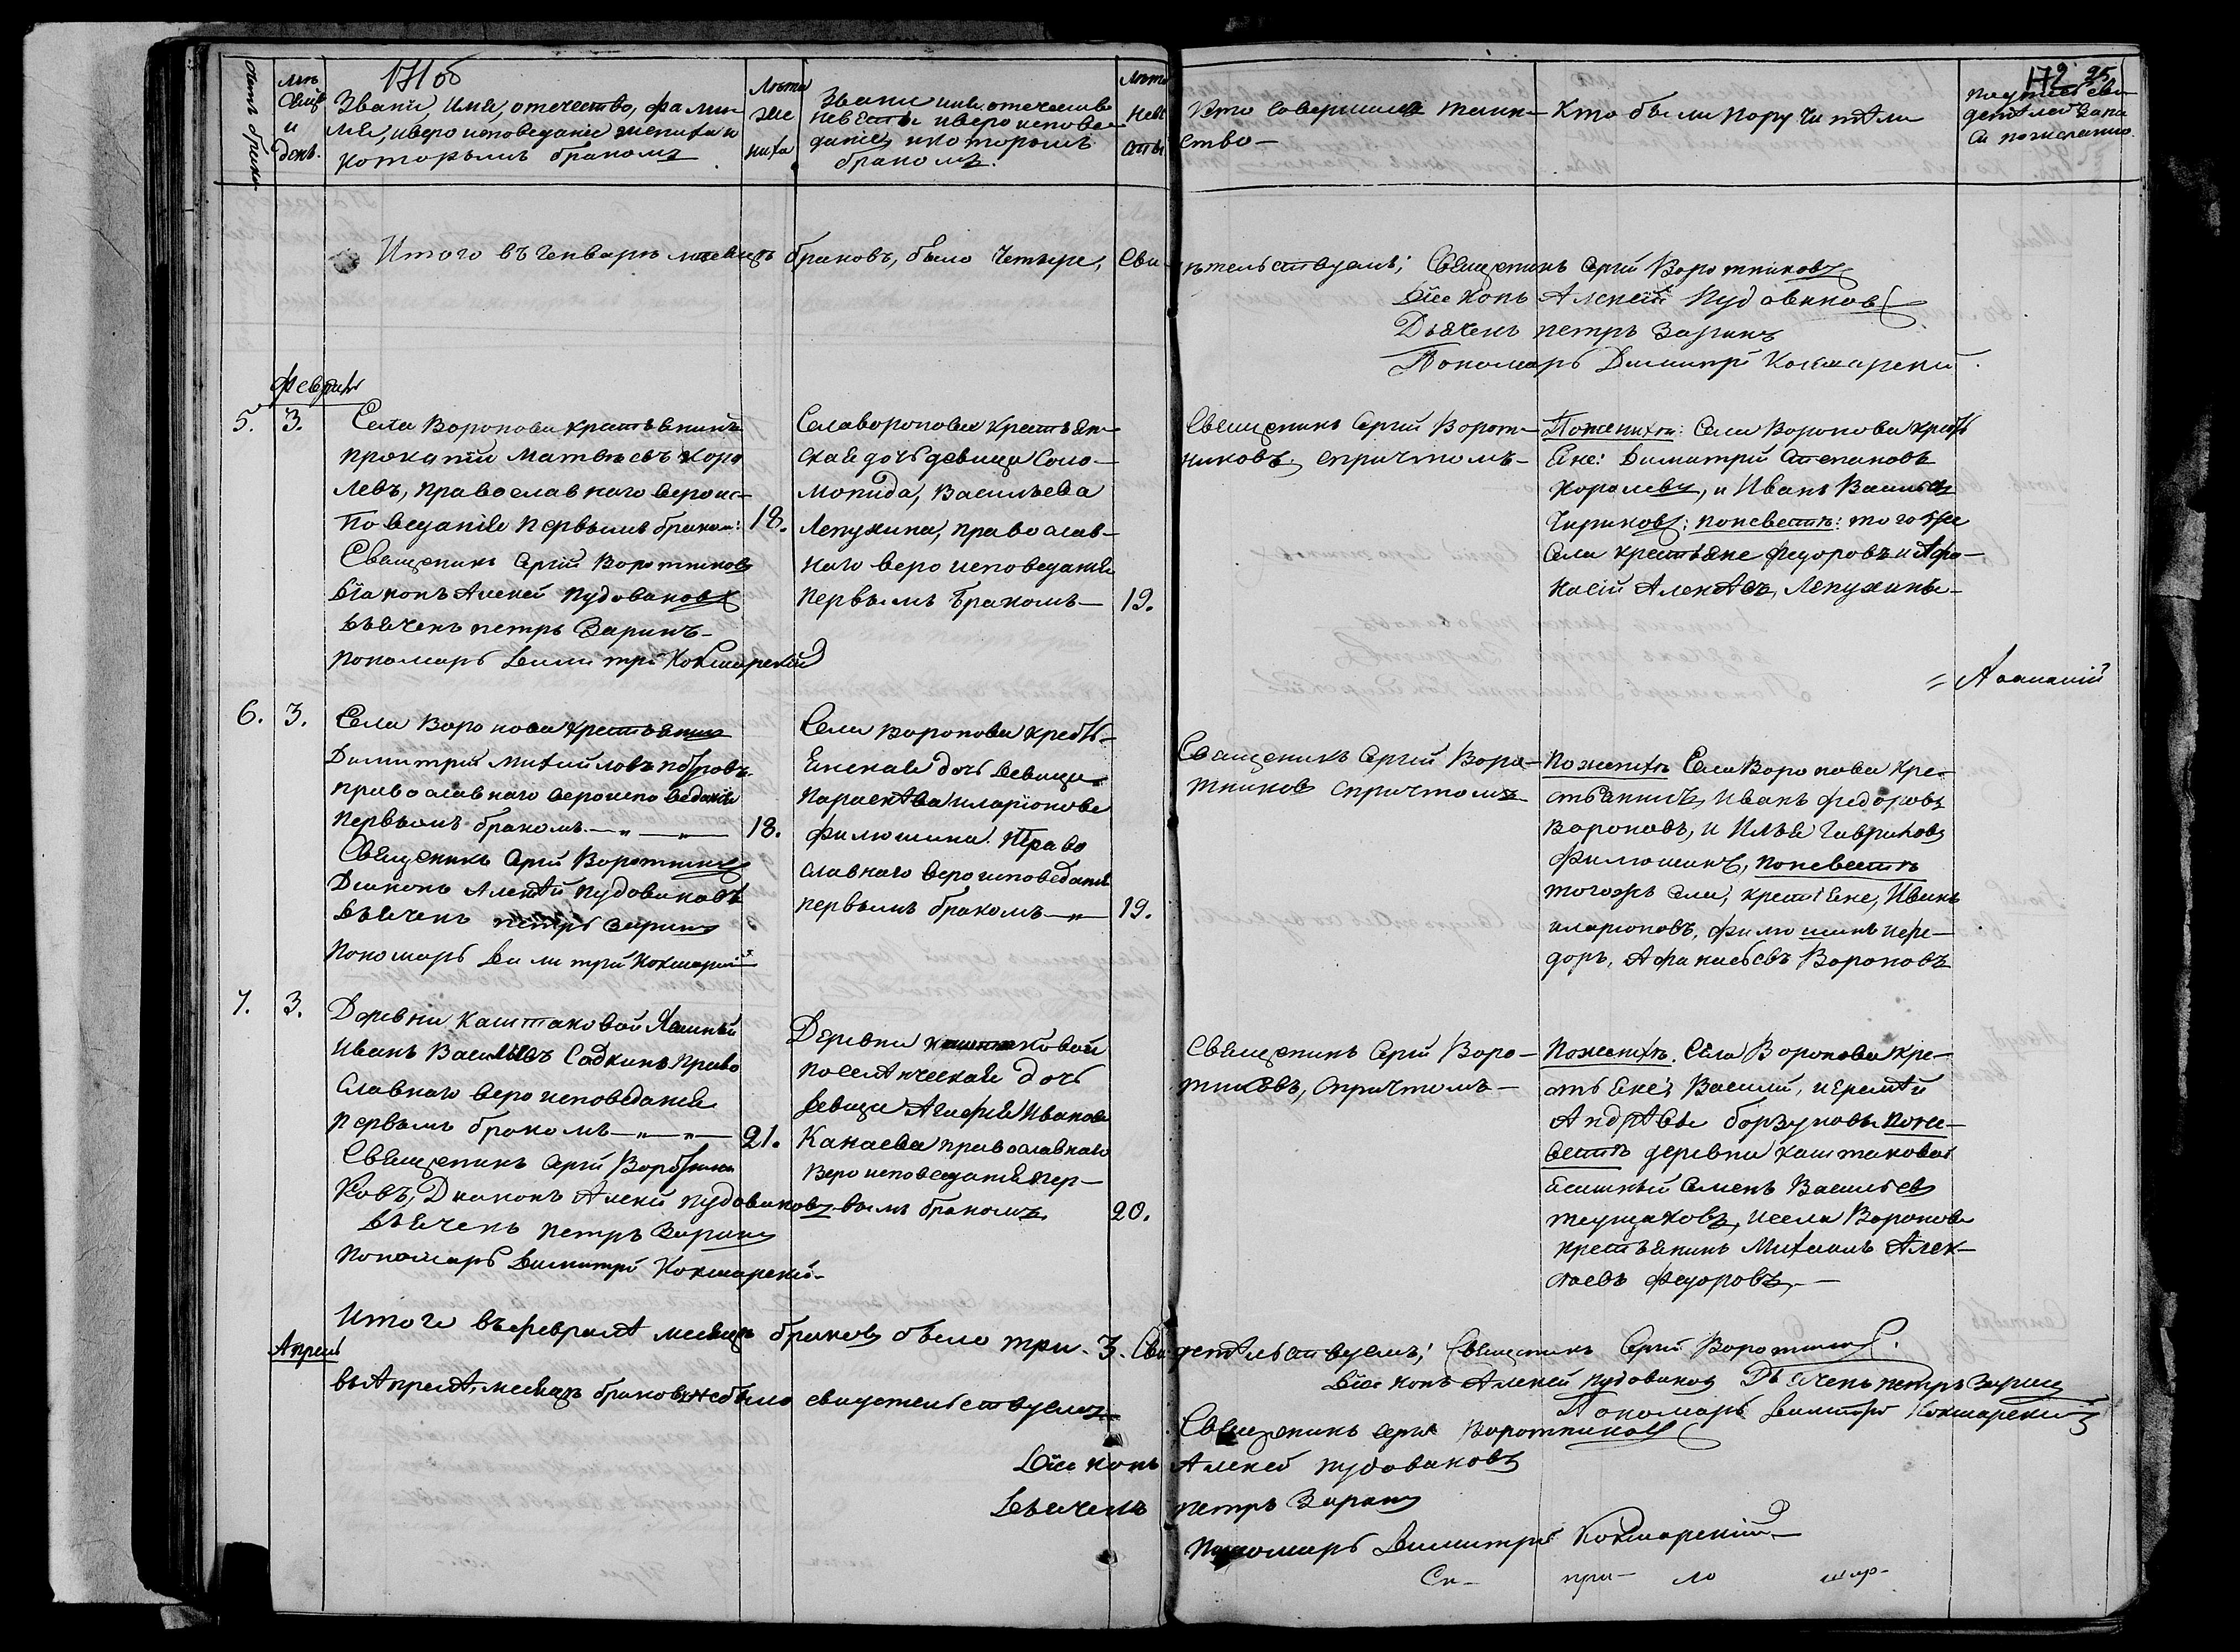 171 об
172 25
Счетъ браков
Мѣсяцъ и день.
Званіе, имя, отечество, фамилія, и вероисповеданіе жениха и которымъ бракомъ
Лѣта жениха
Званіе имя отечество невесты и вероисповеданіе, и которымъ бракомъ.
Лѣта невесты
Кто совершилъ таинство—
Кто были поручители
Итого въ Генварѣ месяцѣ браковъ, было четыре, сви-
дѣтельствуемъ; Священникъ Сергій Воротниковъ
Діаконъ Алексій Пудовиковъ
Дьячекъ петръ Заринъ
Пономарь Димитрій Кокшарскій
Февраль
5. 3.
Села Воронова крестьянинъ
прокопій Матвѣевъ Коро
левъ, православнаго верои-
споведанія первымъ бракомъ: 18.
Священникъ Сергій Воротниковъ
Діаконъ Алексей Пудовиковъ
Дьячекъ петръ Заринъ-
пономарь Димитрій Кокшарскій
Села воронова крестьян-
ская дочь девица Соло-
монида, Васильева
Лепухина, православ-
наго вероисповеданія
первымъ бракомъ— 19.
Священникъ Сергій Ворот-
никовъ, спричтомъ-
По женихѣ: Села Воронова кресть
яне: Димитрій Степановъ
Королевъ, и Иванъ Васильевъ
Чириковъ: по невестѣ: того же
села крестьяне Федоровъ и Афа-
насій Алексѣевъ, Лепухины-
= Афанасий
6. 3.
Села Воронова крестьянинъ
Димитрій Михайловъ петровъ
православнаго вероисповеданія
первымъ бракомъ—„—„— 18.
Священникъ Сергій Воротниковъ
Диаконъ Алексѣй Пудовиковъ
Дьячекъ петръ Заринъ
Пономарь Димитрій Кокшарскій
Села Воронова кресть-
янская дочь девица
Параскѣва иларіонова
филюшина. Право
славнаго вероисповеданія
первымъ бракомъ—„— 19.
Священникъ Сергій Воро-
тниковъ спричтомъ
По женихѣ Села Воронова кре-
стьянинъ, Иванъ федоровъ
Вороновъ, и Илья Гавриловъ
Филюшинъ, по невестѣ
того жъ села, крестьяне, Иванъ
иларіоновъ, филюшинъ и фе-
доръ, Афанасьевъ Вороновъ
7. 3.
Деревни Каштаковой Ясашный
Иванъ Васильевъ Садкинъ право
славнаго вероисповеданія
первымъ бракомъ—„—„— 21.
Священникъ Сергій Воротни
ковъ, Диаконъ Алексѣй пудовиковъ
Дьячекъ петръ Заринъ
Пономарь Димитрій Кокшарскій-
Деревни каштаковой
поселенческая дочь
девица Агафія Иванова
Канаева православнаго
вероисповеданія пер-
вымъ бракомъ. 20.
Священникъ Сергій Воро-
тниковъ, спричтомъ—
По женихѣ. Села Воронова кре-
стьяне: Василій, и Еремѣй
Андрѣевы борзуновы по не-
вестѣ деревни каштаковой
ясашный Семенъ Васильевъ
и села Воронова
крестьянинъ Михаилъ Алек-
сѣевъ федоровъ,—
Итого въ февралѣ месяцѣ браковъ было три. 3. Сви-
детѣльствуемъ; Священникъ Сергій Воротниковъ.
Діаконъ Алексѣй пудовиковъ Дьячекъ петръ Заринъ
Пономарь Димитрій Кокшарскій
Апрель
въ Апрелѣ, месяцѣ браковъ небыло свидетельствуемъ
Священникъ Сергій Воротниковъ
Діаконъ Алексей пудовиковъ
Дьячекъ петръ Заринъ
Пономарь Димитрій Кокшарскій—
Сп- при- ло